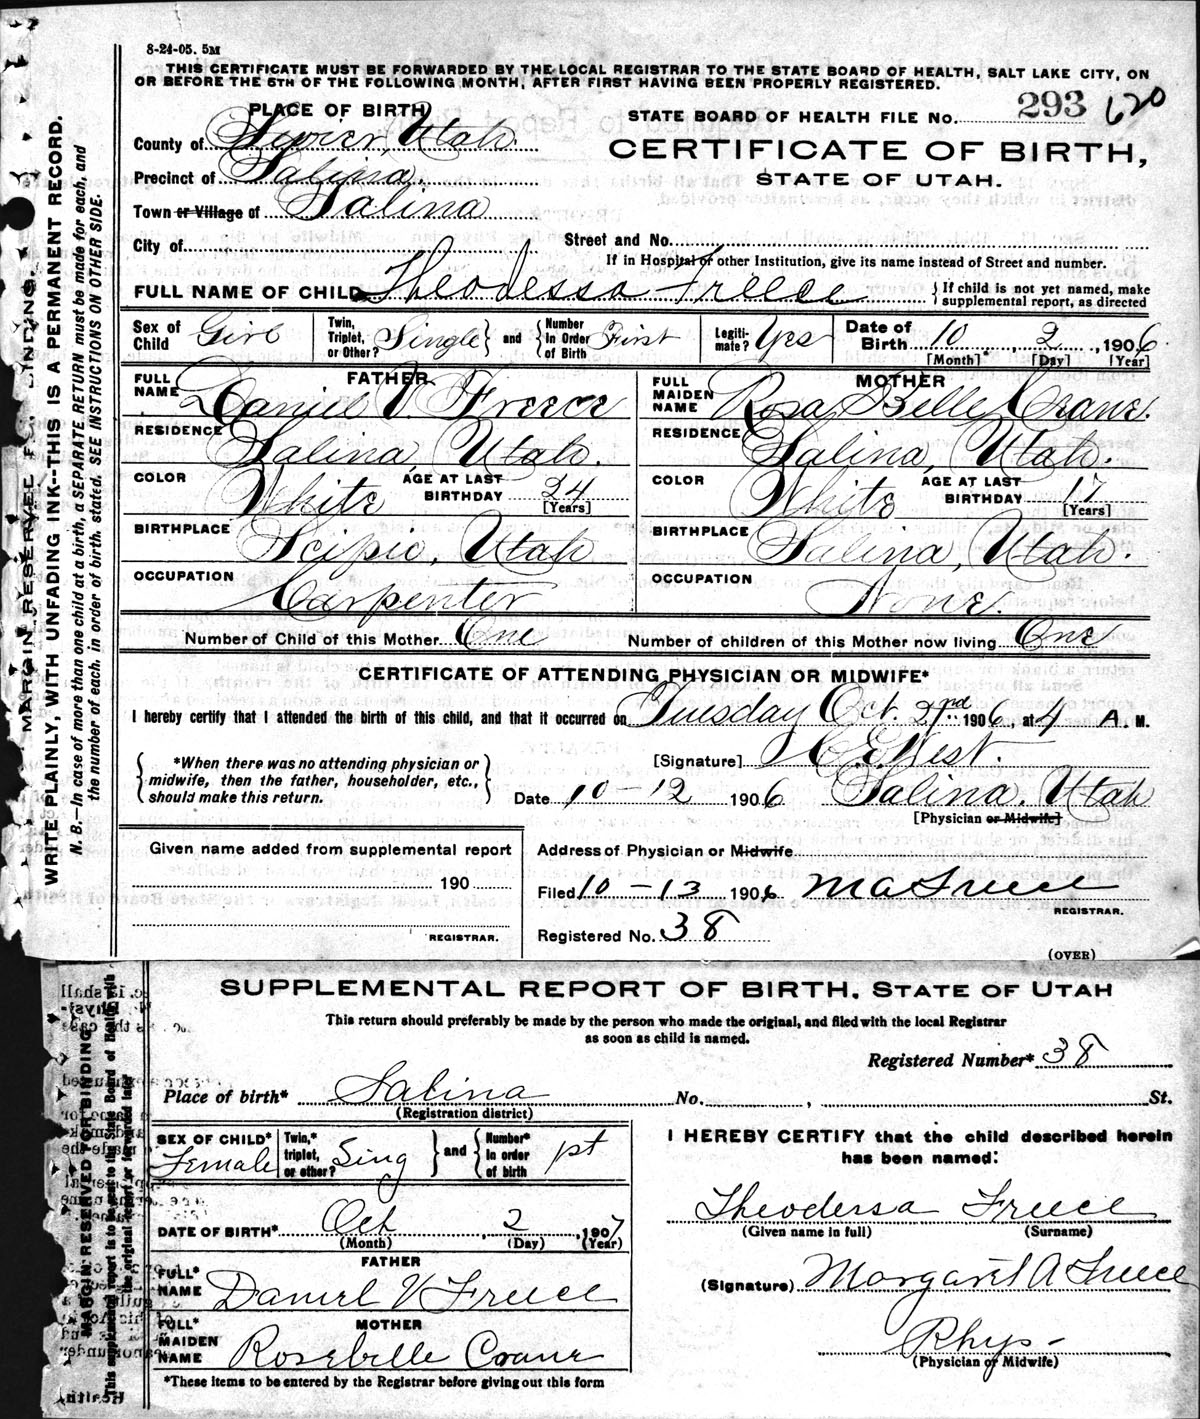 8-24-05. 5M
THIS CERTIFICATE MUST BE FORWARDED BY THE LOCAL REGISTRAR TO THE STATE BOARD OF HEALTH, SALT LAKE CITY, ON
OR BEFORE THE 5TH OF THE FOLLOWING MONTH, AFTER FIRST HAVING BEEN PROPERLY REGISTERED.
PLACE OF BIRTH
STATE BOARD OF HEALTH FILE No. 293 620
County of Sevier, Utah.
CERTIFICATE OF BIRTH,
Precinct of Salina.
STATE OF UTAH.
Town or Village of Salina
City of
Street and No.
If in Hospital or other Institution, give its name instead of Street and number.
FULL NAME OF CHILD Theodessa Freece
If child is not yet named, make
supplemental report, as directed
Sex of Child Girl
Twin, Triplet, or Other? Single and Number In Order of Birth First
Legiti- mate? Yes
Date of Birth 10 2 1906
[Month]* [Day] [Year]
FATHER
FULL NAME Daniel V. Freece
RESIDENCE Salina, Utah.
COLOR White AGE AT LAST BIRTHDAY 24
[Years]
BIRTHPLACE Scipio, Utah
OCCUPATION Carpenter
MOTHER
FULL MAIDEN NAME Rosa Belle Crane.
RESIDENCE Salina, Utah.
COLOR White AGE AT LAST BIRTHDAY 17
[Years]
BIRTHPLACE Salina, Utah.
OCCUPATION None.
Number of Child of this Mother One
Number of children of this Mother now living One
CERTIFICATE OF ATTENDING PHYSICIAN OR MIDWIFE*
I hereby certify that I attended the birth of this child, and that it occurred on Tuesday Oct. 2nd 1906, at 4 A. M.
*When there was no attending physician or
midwife, then the father, householder, etc.,
should make this return.
[Signature] West.
Date 10-12 1906 Salina, Utah
[Physician or Midwife]
Given name added from supplemental report
190
REGISTRAR.
Address of Physician or Midwife
Filed 10-13 1906 M A Freece
REGISTRAR.
Registered No. 38
(OVER)
MARGIN RESERVED FOR BINDING
WRITE PLAINLY, WITH UNFADING INK--THIS IS A PERMANENT RECORD.
N. B.--In case of more than one child at a birth, a SEPARATE RETURN must be made for each, and
the number of each, in order of birth, stated. SEE INSTRUCTIONS ON OTHER SIDE.
SUPPLEMENTAL REPORT OF BIRTH, STATE OF UTAH
This return should preferably be made by the person who made the original, and filed with the local Registrar
as soon as child is named.
Registered Number* 38
Place of birth* Salina No. , St.
(Registration district)
SEX OF CHILD* Female
Twin,* triplet, or other? Sing and Number* In order of birth 1st
DATE OF BIRTH* Oct 2, 1907
(Month) (Day) (Year)
FATHER
FULL* NAME Daniel V Freece
MOTHER
FULL* MAIDEN NAME Rosebelle Crane
*These items to be entered by the Registrar before giving out this form
I HEREBY CERTIFY that the child described herein
has been named:
Theodersa Freece
(Given name in full) (Surname)
(Signature) Margaret A Freece
Phys-
(Physician or Midwife)
MARGIN RESERVED FOR BINDING
This supplemental report is to be sent to the State Board of Health with
the original report or forwarded later